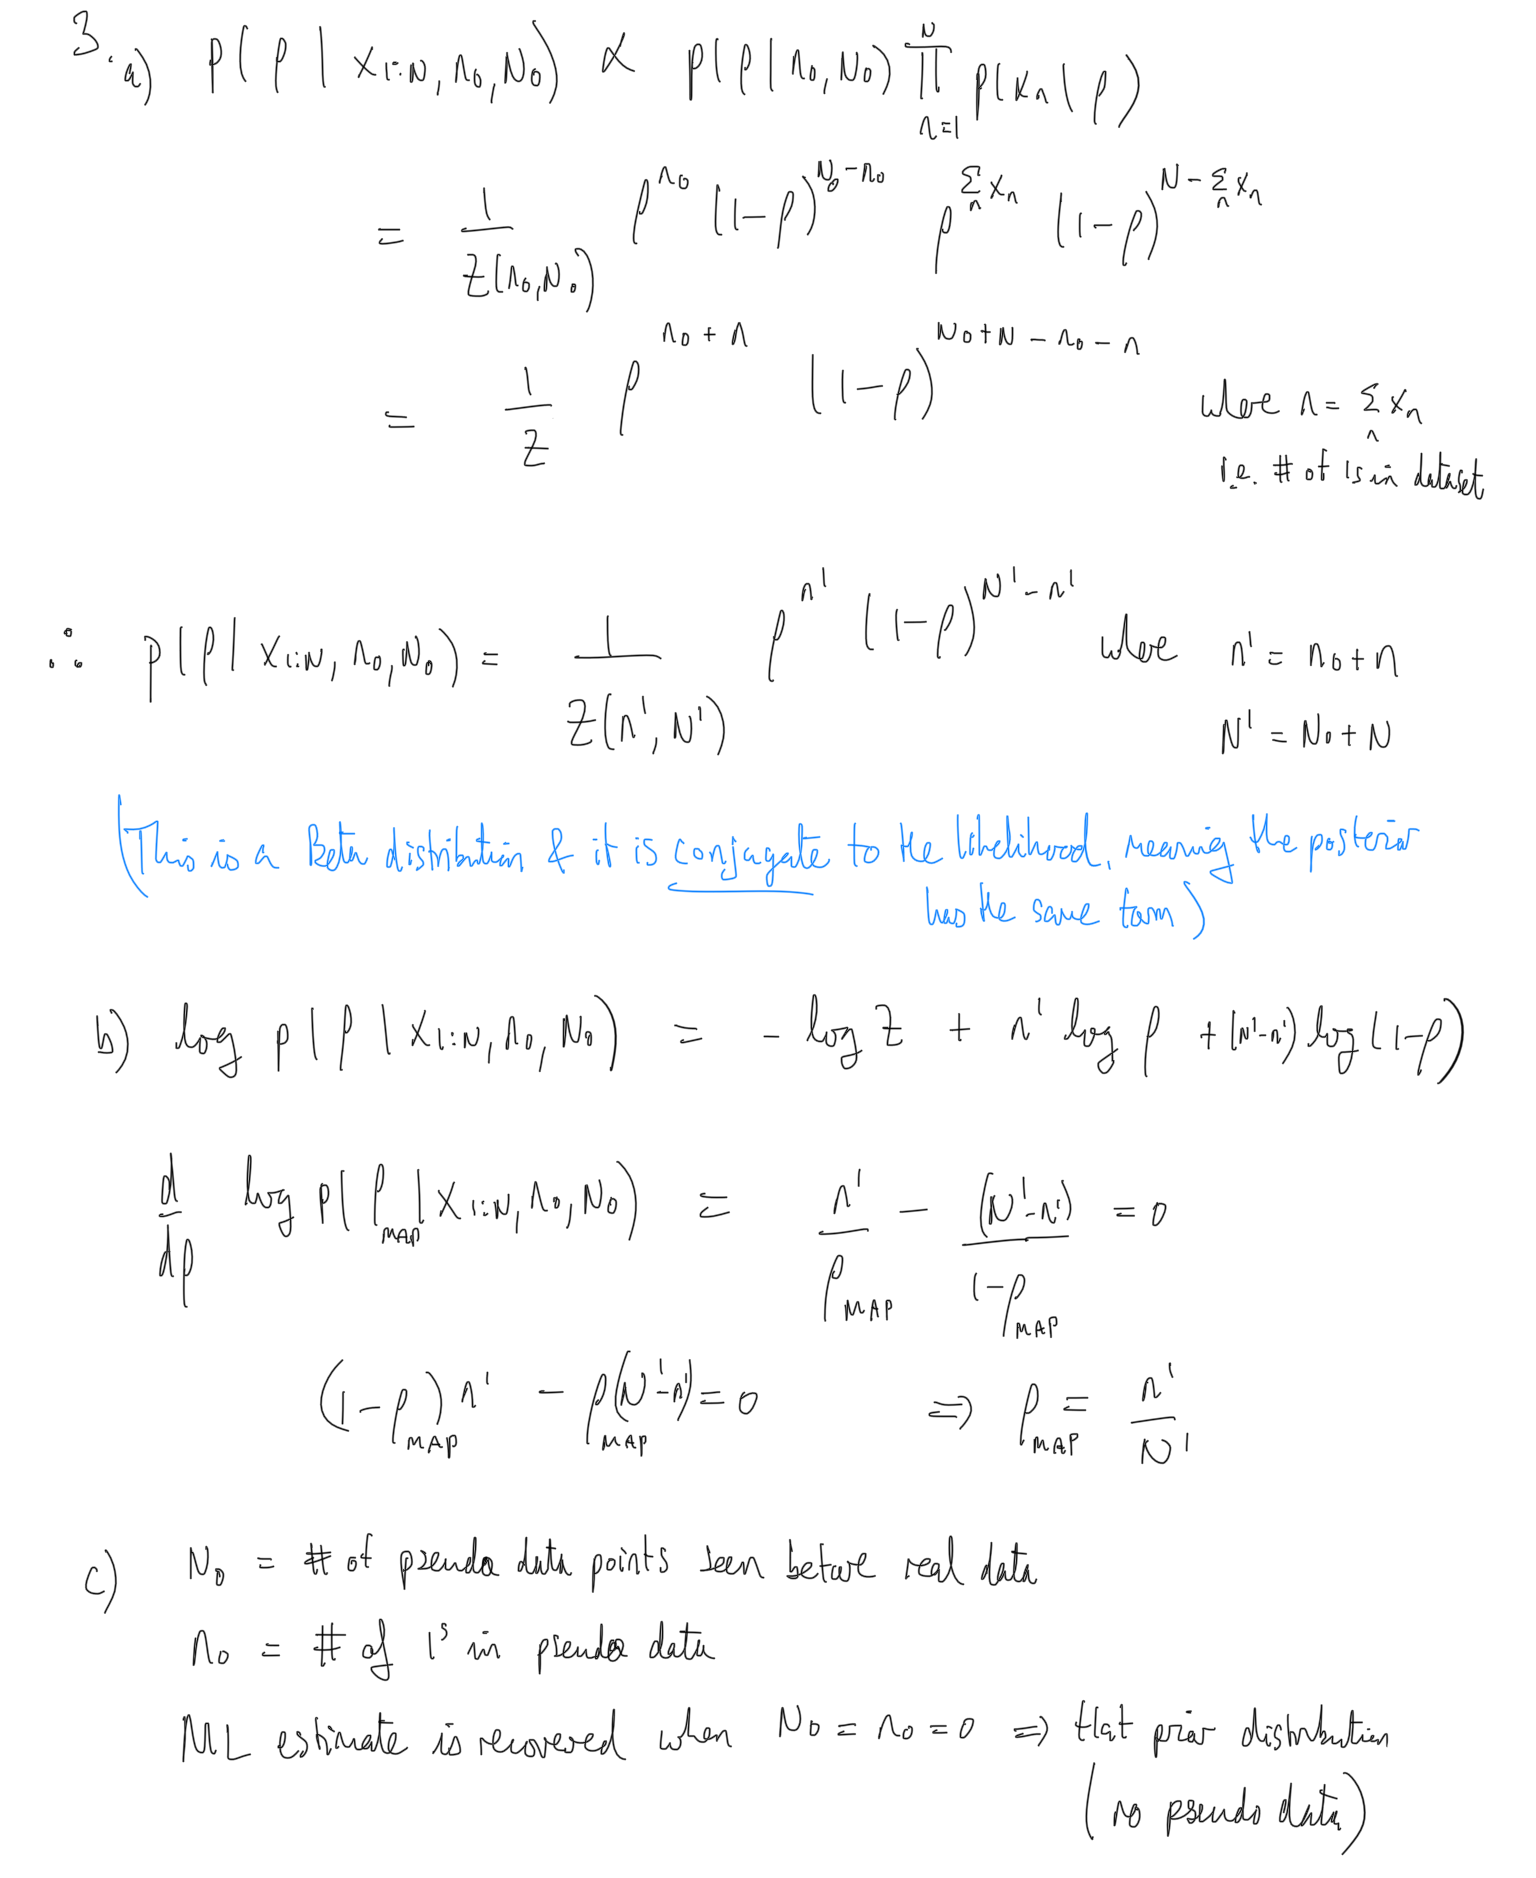 3. a) p(ρ | x₁:N, n₀, N₀) ∝ p(ρ | n₀, N₀) ∏ₙ₌₁ᴺ p(xₙ | ρ)
= 1/Z(n₀, N₀) ρ^(n₀) (1-ρ)^(N₀-n₀) ρ^(Σₙ xₙ) (1-ρ)^(N - Σₙ xₙ)
= 1/Z ρ^(n₀ + n) (1-ρ)^(N₀ + N - n₀ - n) where n = Σₙ xₙ
i.e. # of 1s in dataset
∴ p(ρ | x₁:N, n₀, N₀) = 1/Z(n', N') ρ^(n') (1-ρ)^(N'-n') where n' = n₀ + n
N' = N₀ + N
(This is a Beta distribution & it is conjugate to the likelihood, meaning the posterior
has the same form)
b) log p(ρ | x₁:N, n₀, N₀) = - log Z + n' log ρ + (N'-n') log (1-ρ)
d/dρ log p(ρ_MAP | x₁:N, n₀, N₀) = n'/ρ_MAP - (N'-n')/(1-ρ_MAP) = 0
(1-ρ_MAP) n' - ρ_MAP (N'-n') = 0 ⇒ ρ_MAP = n'/N'
c) N₀ = # of pseudo data points seen before real data
n₀ = # of 1's in pseudo data
ML estimate is recovered when N₀ = n₀ = 0 ⇒ flat prior distribution
(no pseudo data)